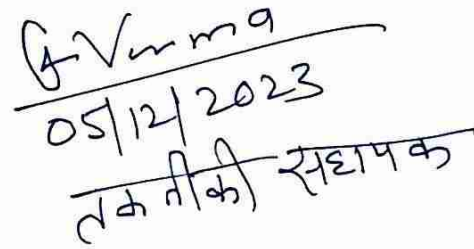 G Verma
05/12/2023
तकनीकी सहायक